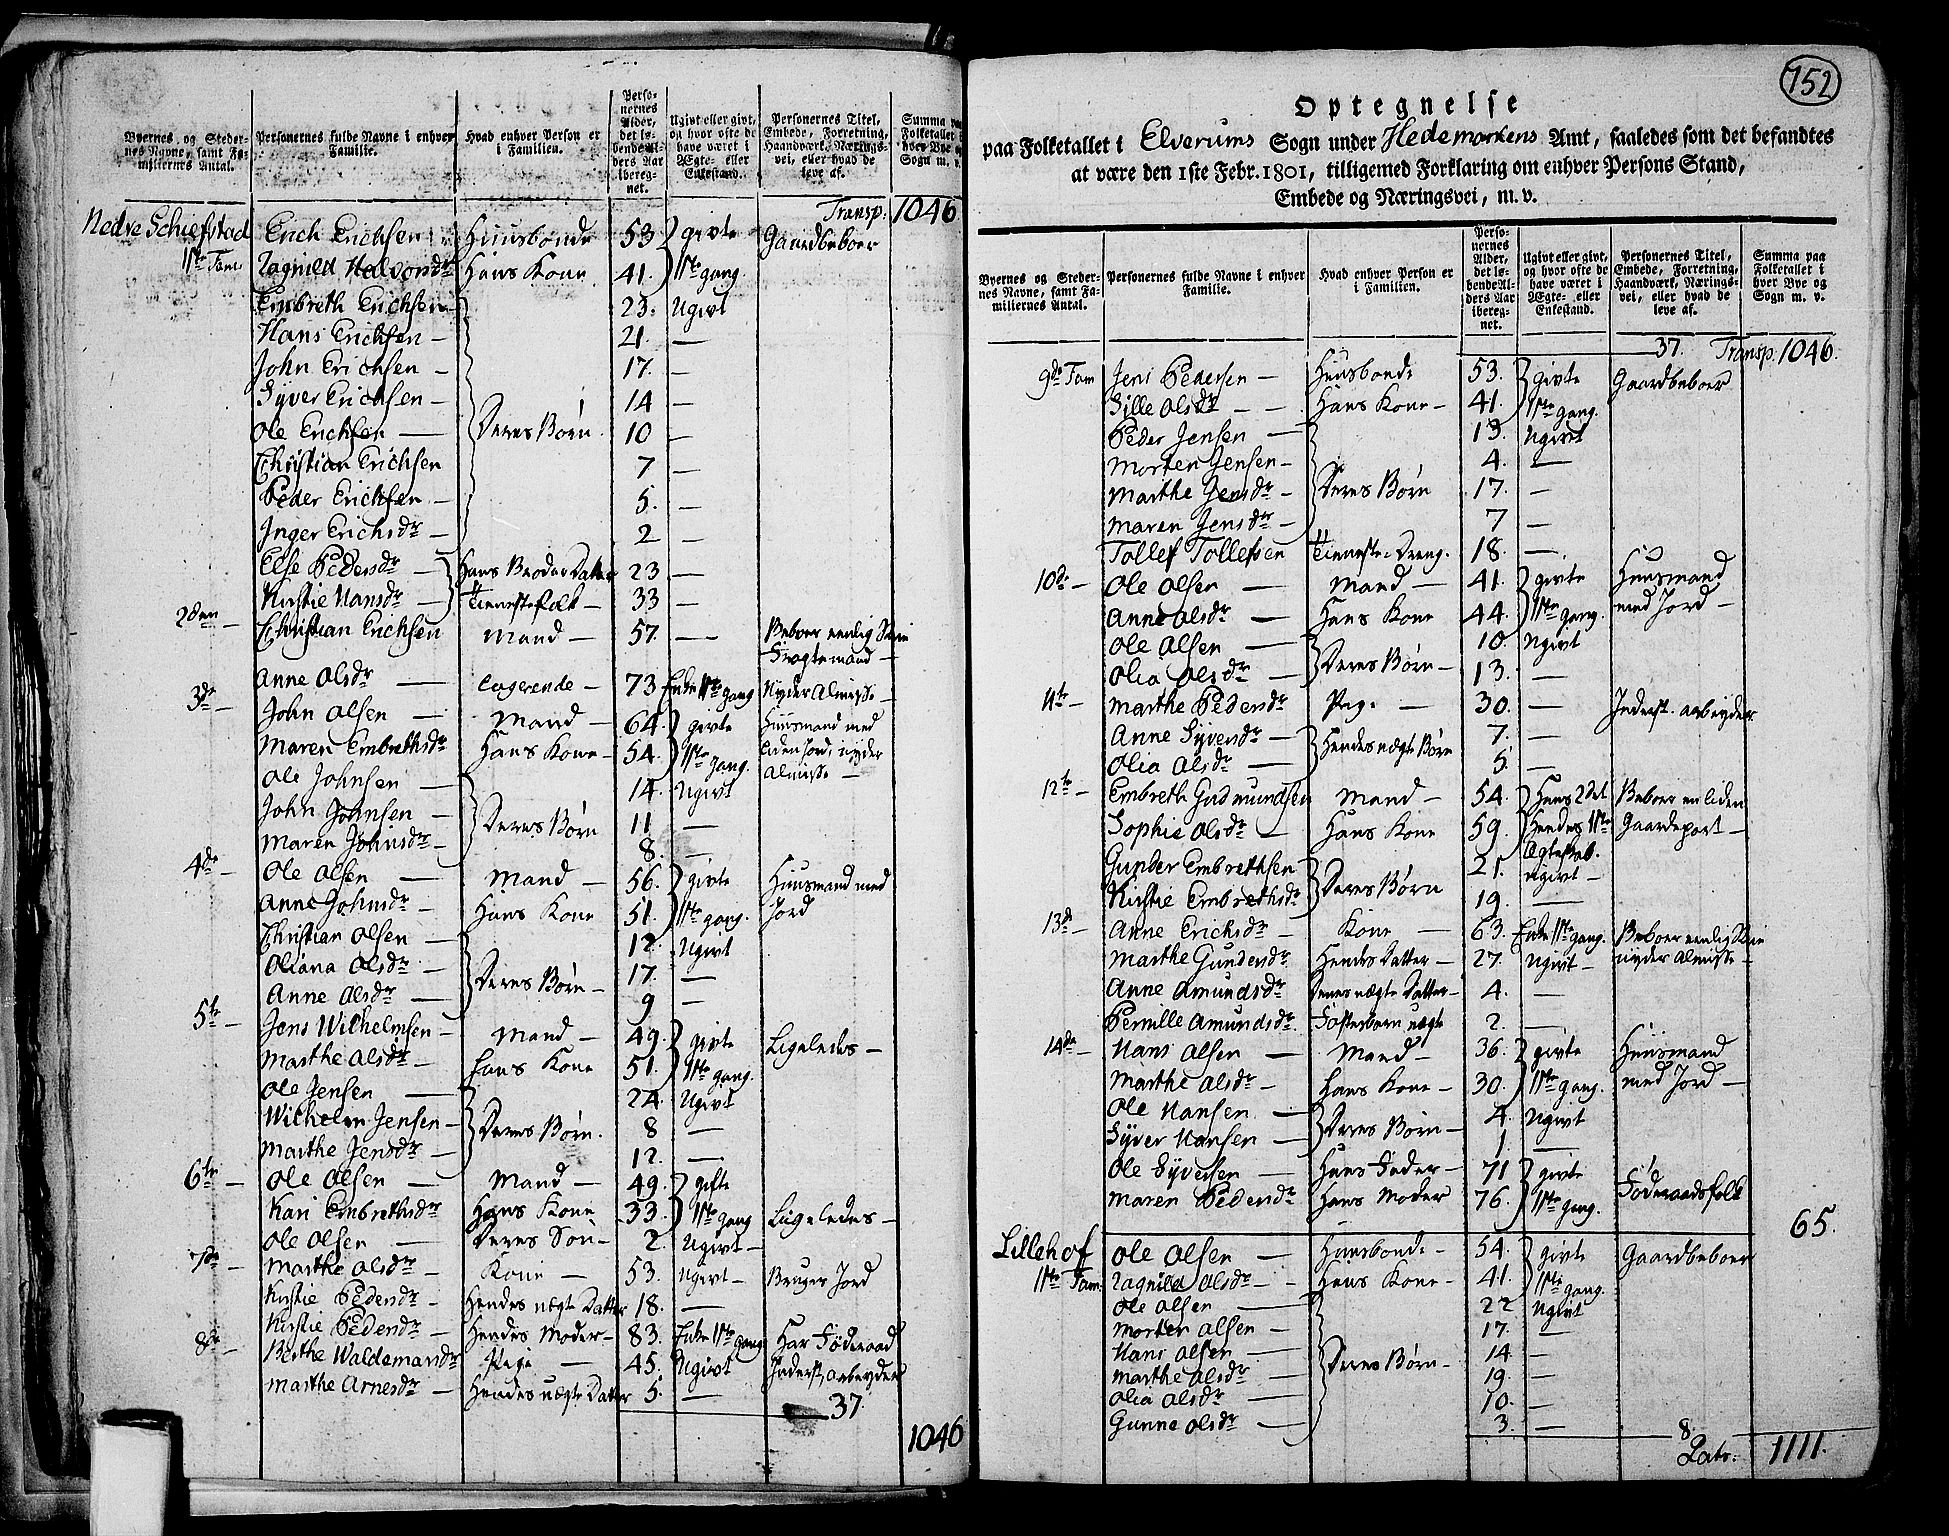 Byernes og Steder-
nes Navne, samt Fa-
miliernes Antal.
Personernes fulde Navne i enhver
Familie.
Hvad enhver Person er
i Familien.
Perso-
nernes
Alder,
det lø-
bende Al-
ders Aar
ibereg-
net.
Ugivt eller givt,
og hvor ofte de
have været i
Ægte- eller
Enkestand.
Personernes Titel,
Embede, Forretning,
Haandværk, Nærings-
vei, eller hvad de
leve af.
Summa paa
Folketallet i
hver Bye og
Sogn m. v.
Transp: 1046
Nedre Schiefstad Erich Erichsen Huusbonde 53 givte Gaardbeboer
1ste Fam. Ragnild Halvorsdr Hans Kone 41. 1ste gang.
Embreth Erichsen 23. Ugivt
Hans Erichsen – 21. —
John Erichsen – 17. —
Syver Erichsen – 14 —
Ole Erichsen — Deres Børn 10 —
Christian Erichsen 7 —
Peder Erichsen – 5. —
Inger Erichsdr – 2 —
Else Pedersdr – Hans Broder Datter 23 —
Kirstie Hansdr – Tienestefolk – 33 —
2den – Christian Erichsen Mand – 57. — Beboer eenlig
Fragtemand –
Anne Olsdr — Logerende – 73 Enke 1ste gang Nyder Almisse –
3de – John Olsen — Mand – 64. givte Huusmand med
Maren Embrethsdr Hans Kone – 54. 1ste gang. liden Jord, nyder
Almisse —
Ole Johnsen — 14. Ugivt
John Johnsen – Deres Børn 11 —
Maren Johnsdr – 8. —
4de – Ole Olsen — Mand – 56. givte Huusmand med
Anne Johnsdr – Hans Kone 51. 1ste gang. Jord
Christian Olsen – 12. Ugivt
Oliana Olsdr – Deres Børn – 17. —
Anne Olsdr — 9 —
5te – Jens Wilhelmsen – Mand – 49. givte Ligeledes –
Marthe Olsdr – Hans Kone 51. 1ste gang.
Ole Jensen — 24. Ugivt
Wilhelm Jensen – Deres Børn. 8 —
Marthe Jensdr – 12. —
6te – Ole Olsen — Mand – 49. gifte
Kari Embrethsdr Hans Kone 33. 1ste gang Ligeledes –
Ole Olsen — Deres Søn – 2. Ugivt –
7de – Marthe Olsdr – Kone – 53. Ugivt – Bruger Jord
Kirstie Pedersdr – Hendes uægte Datter 18. —
Kirstie Pedersdr – Hendes Moder – 83. Enke 1ste gang Har Føderaad
8de – Berthe Waldemarsdr Pige — 45. Ugivt Inderst, arbeyder
Marthe Arnesdr – Hendes uægte Datter 5. —
37.
1046
152
Optegnelse
paa Folketallet i Elverums Sogn under Hedemarkens Amt, saaledes som det befandtes
at være den 1ste Febr. 1801, tilligemed Forklaring om enhver Persons Stand,
Embede og Næringsvei, m. v.
Byernes og Steder-
nes Navne, samt Fa-
miliernes Antal.
Personernes fulde Navne i enhver
Familie.
Hvad enhver Person er
i Familien.
Perso-
nernes
Alder,
det lø-
bende Al-
ders Aar
ibereg-
net.
Ugivt eller givt,
og hvor ofte de
have været i
Ægte- eller
Enkestand.
Personernes Titel,
Embede, Forretning,
Haandværk, Nærings-
vei, eller hvad de
leve af.
Summa paa
Folketallet i
hver Bye og
Sogn m. v.
37. Transp. 1046.
9de Fam Jens Pedersen — Huusbonde 53. givte Gaardbeboer
Sille Olsdr – – Hans Kone – 41. 1ste gang.
Peder Jensen — 13. Ugivt
Morten Jensen – 4. —
Marthe Jensdr – Deres Børn 17. –
Maren Jensdr – 7 —
Tollef Tollefsen Tieneste-Dreng. 18. —
10de – Ole Olsen — Mand — 41. givte Huusmand
Anne Olsdr — Hans Kone 44. 1ste gang. med Jord –
Ole Olsen — 10. Ugivt
Olia Olsdr – Deres Børn – 13. —
11te – Marthe Pedersdr Pige — 30. — Inderst. arbeyder
Anne Syversdr – Hendes uægte Børn 7. —
Olia Olsdr — 5 —
12te – Embreth Gudmundsen Mand – 54. Hans 2det Beboer en liden
Sophie Olsdr — Hans Kone 59. Hendes 1ste Gaardepart –
Ægteskab.
Gunder Embrethsen 21. Ugivt –
Kirstie Embrethsdr Deres Børn 19. —
13de – Anne Erichsdr – Kone — 63. Enke 1ste gang. Beboer eenlig
Marthe Gundersdr Hendes Datter – 27. Ugivt – nyder Almisse –
Anne Amundsdr Denes uægte Datter – 4. —
Pernille Amundsdr. Fosterbarn uægte 2. —
14de – Hans Olsen — Mand – 36. givte Huusmand
Marthe Olsdr – Hans Kone – 30. 1ste gang. med Jord –
Ole Hansen — 4 Ugivt
Syver Hansen — Deres Børn – 1 —
Ole Syversen — Hans Fader – 71 givte Føderaadsfolk
Maren Pedersdr Hans Moder 76. 1ste gang.
65.
Lillehof Ole Olsen — Huusbonde – 54. givte Gaardbeboer
1ste Fam. Ragnild Olsdr – Hans Kone – 41. 1ste gang.
Ole Olsen — 22 Ugivt
Morten Olsen — 17. —
Hans Olsen — 14 —
Marthe Olsdr – Deres Børn – 19. —
Olia Olsdr — 10. —
Gunne Olsdr — 3. —
8
Latr: 1111.